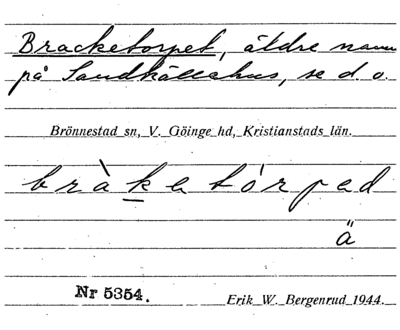 Bracketorpet, äldre namn
på Sandhällahus, se d. o.
Brönnestad sn, V. Göinge hd, Kristianstads län.
bràketórped
ä
Nr 5354.
Erik W. Bergenrud 1944.